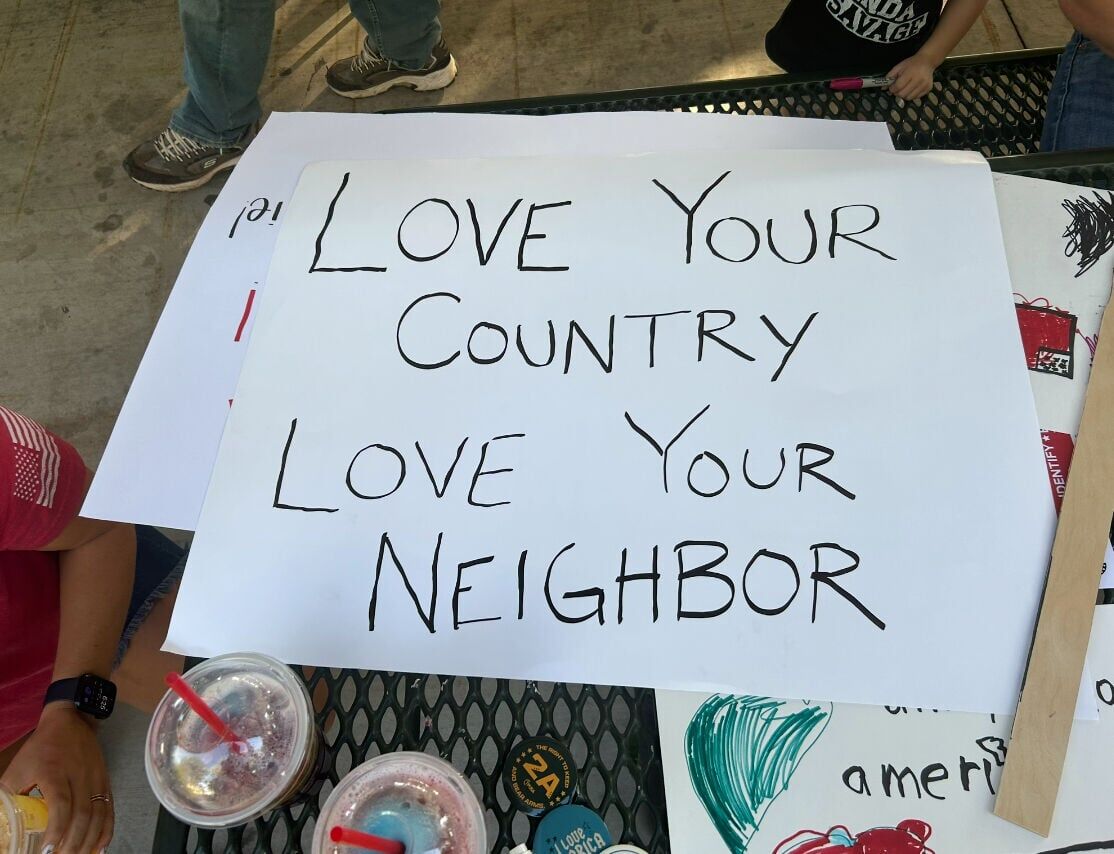 SAVAGE
LOVE YOUR
COUNTRY
LOVE YOUR
NEIGHBOR
IDENTIFY
THE RIGHT TO KEEP
2A
AND BEAR ARMS
I LOVE
ameri